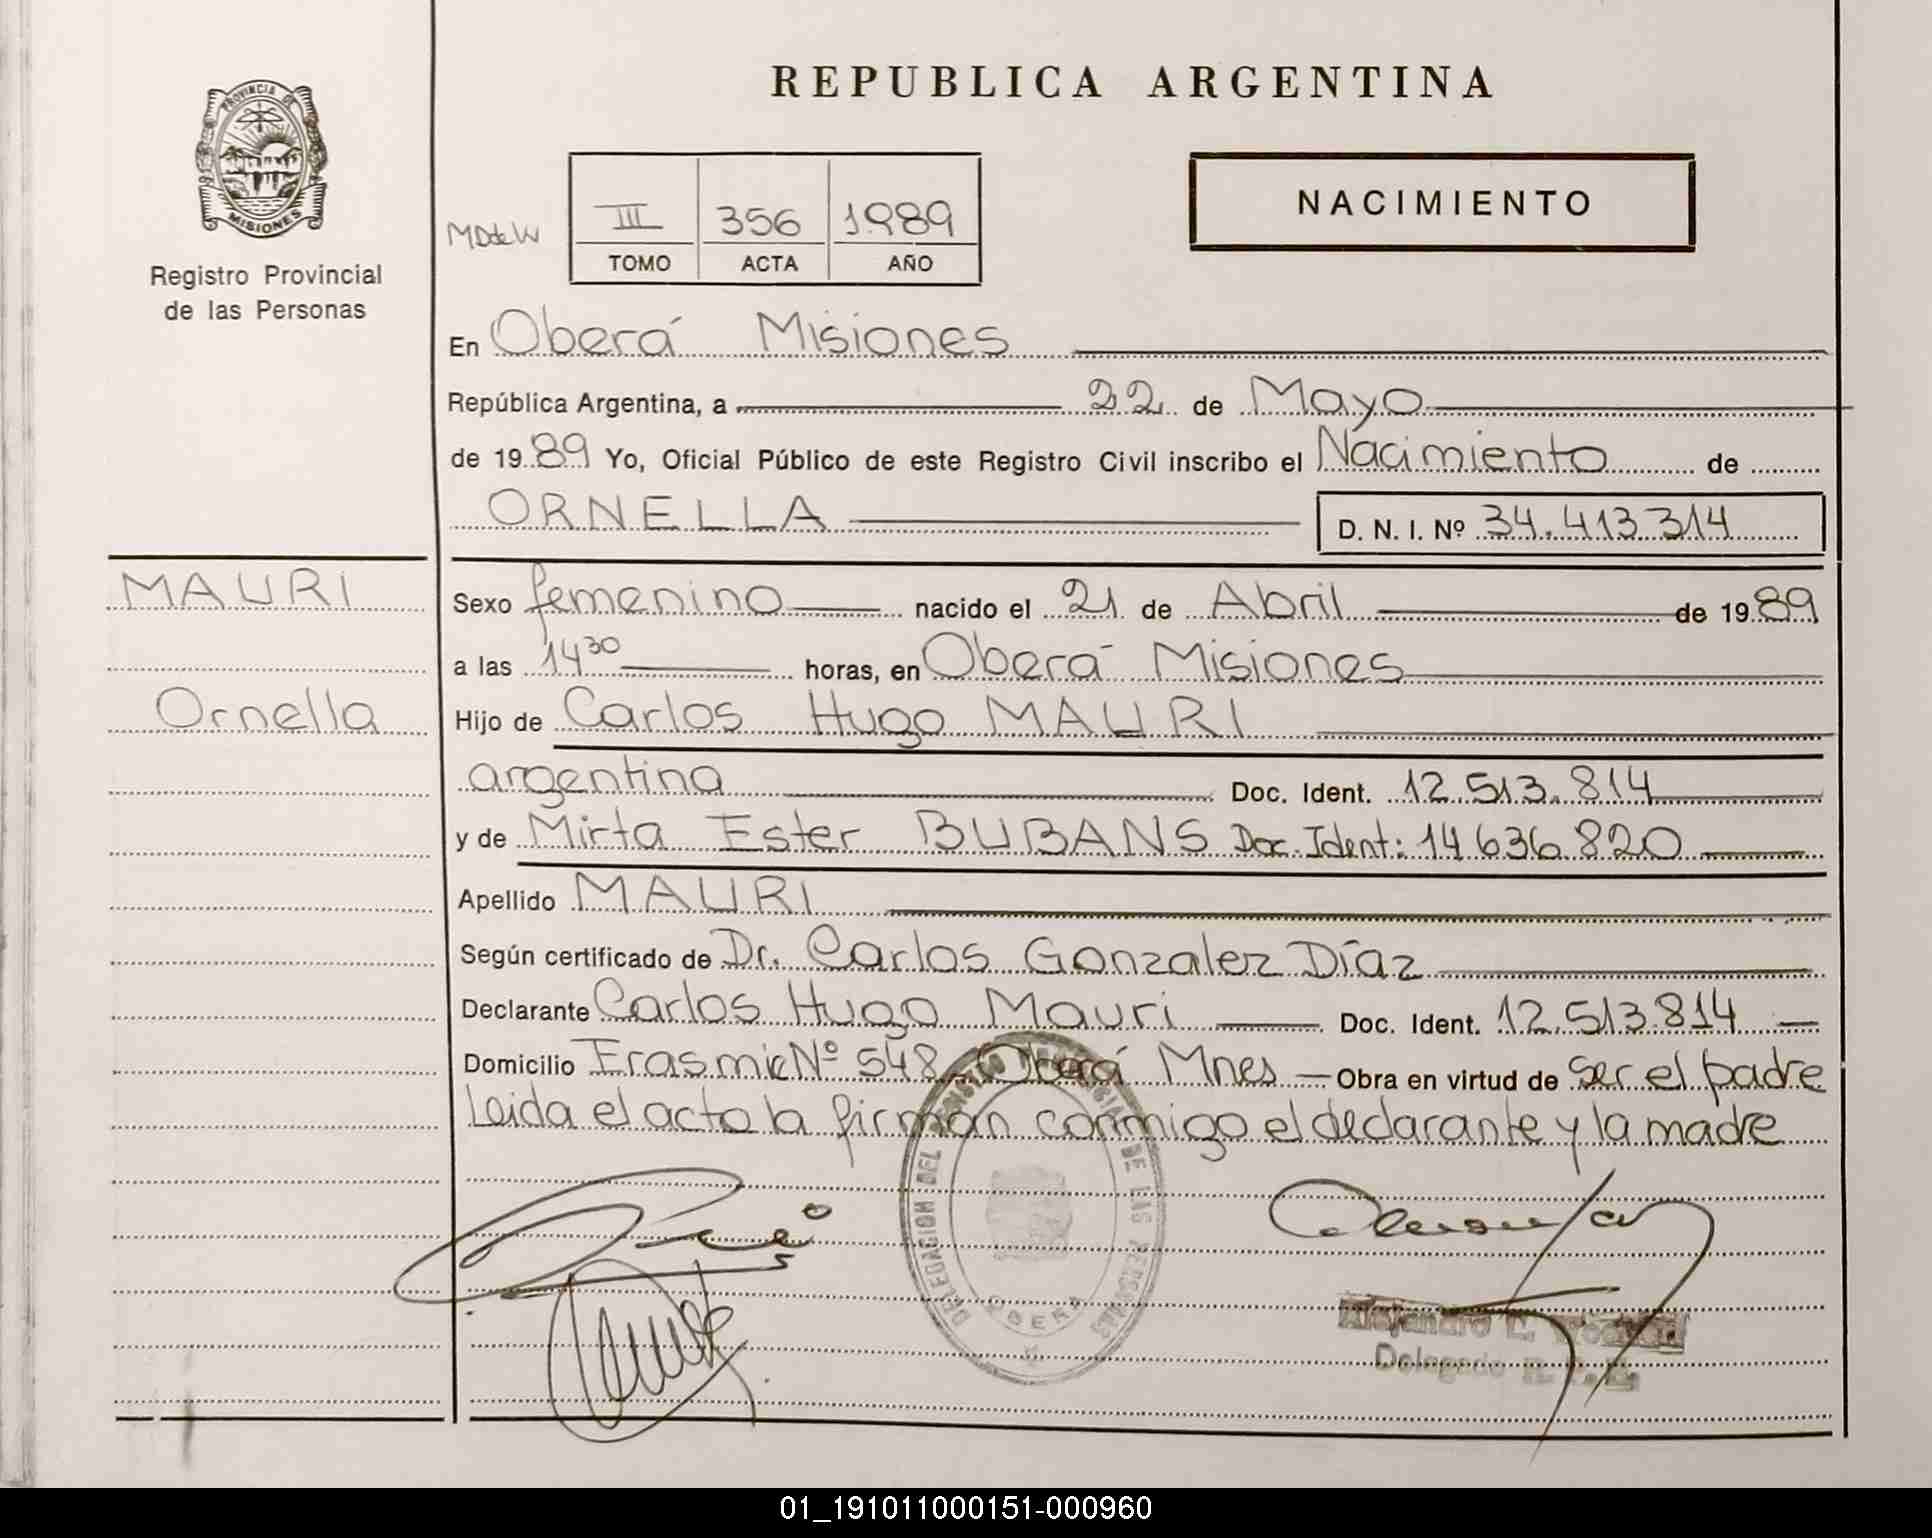 REPUBLICA ARGENTINA
PROVINCIA DE
MISIONES
Registro Provincial
de las Personas
NACIMIENTO
III 356 1989
TOMO ACTA AÑO
En Oberá Misiones
República Argentina, a 22 de Mayo
de 1989 Yo, Oficial Público de este Registro Civil inscribo el Nacimiento de
ORNELLA D. N. I. Nº 34.413314
MAURI
Ornella
Sexo femenino nacido el 21 de Abril de 1989
a las 14 30 horas, en Oberá Misiones
Hijo de Carlos Hugo MAURI
argentina Doc. Ident. 12.513.814
y de Mirta Ester BUBANS Doc. Ident: 14 636 820
Apellido MAURI
Según certificado de Dr. Carlos Gonzalez Díaz
Declarante Carlos Hugo Mauri Doc. Ident. 12.513.814
Domicilio Nº 548 Oberá Mnes — Obra en virtud de ser el padre
Leida el acto la firman conmigo el declarante y la madre
DELEGACION DEL REGISTRO PROVINCIAL DE LAS PERSONAS
OBERA
Alejandro
Delegado
01_191011000151-000960